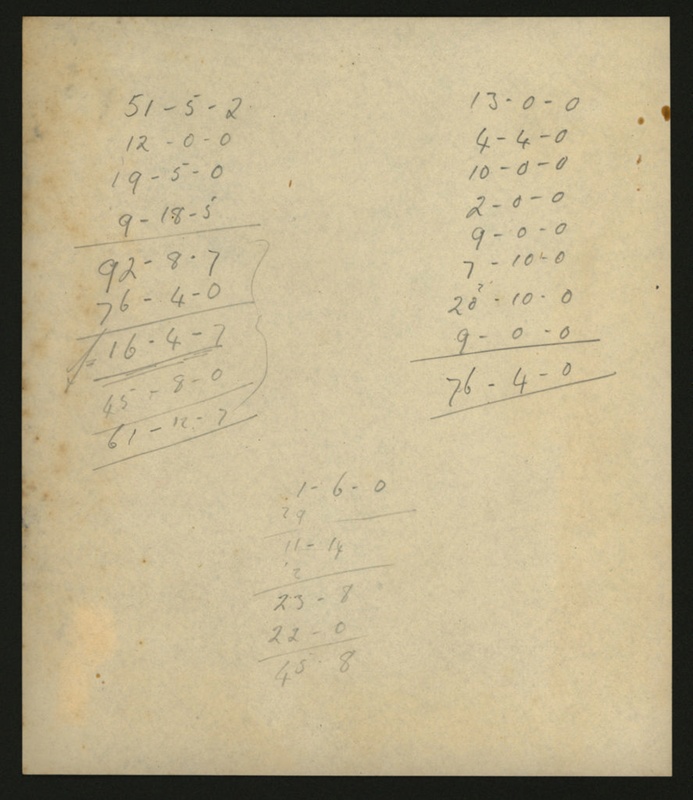 51-5-2
12-0-0
19-5-0
9-18-5
92-8-7
76-4-0
£16-4-7
45-8-0
61-12-7
13-0-0
4-4-0
10-0-0
2-0-0
9-0-0
7-10-0
-10-0
9-0-0
76-4-0
1-6-0
29
11-14
2
23-8
22-0
45 8